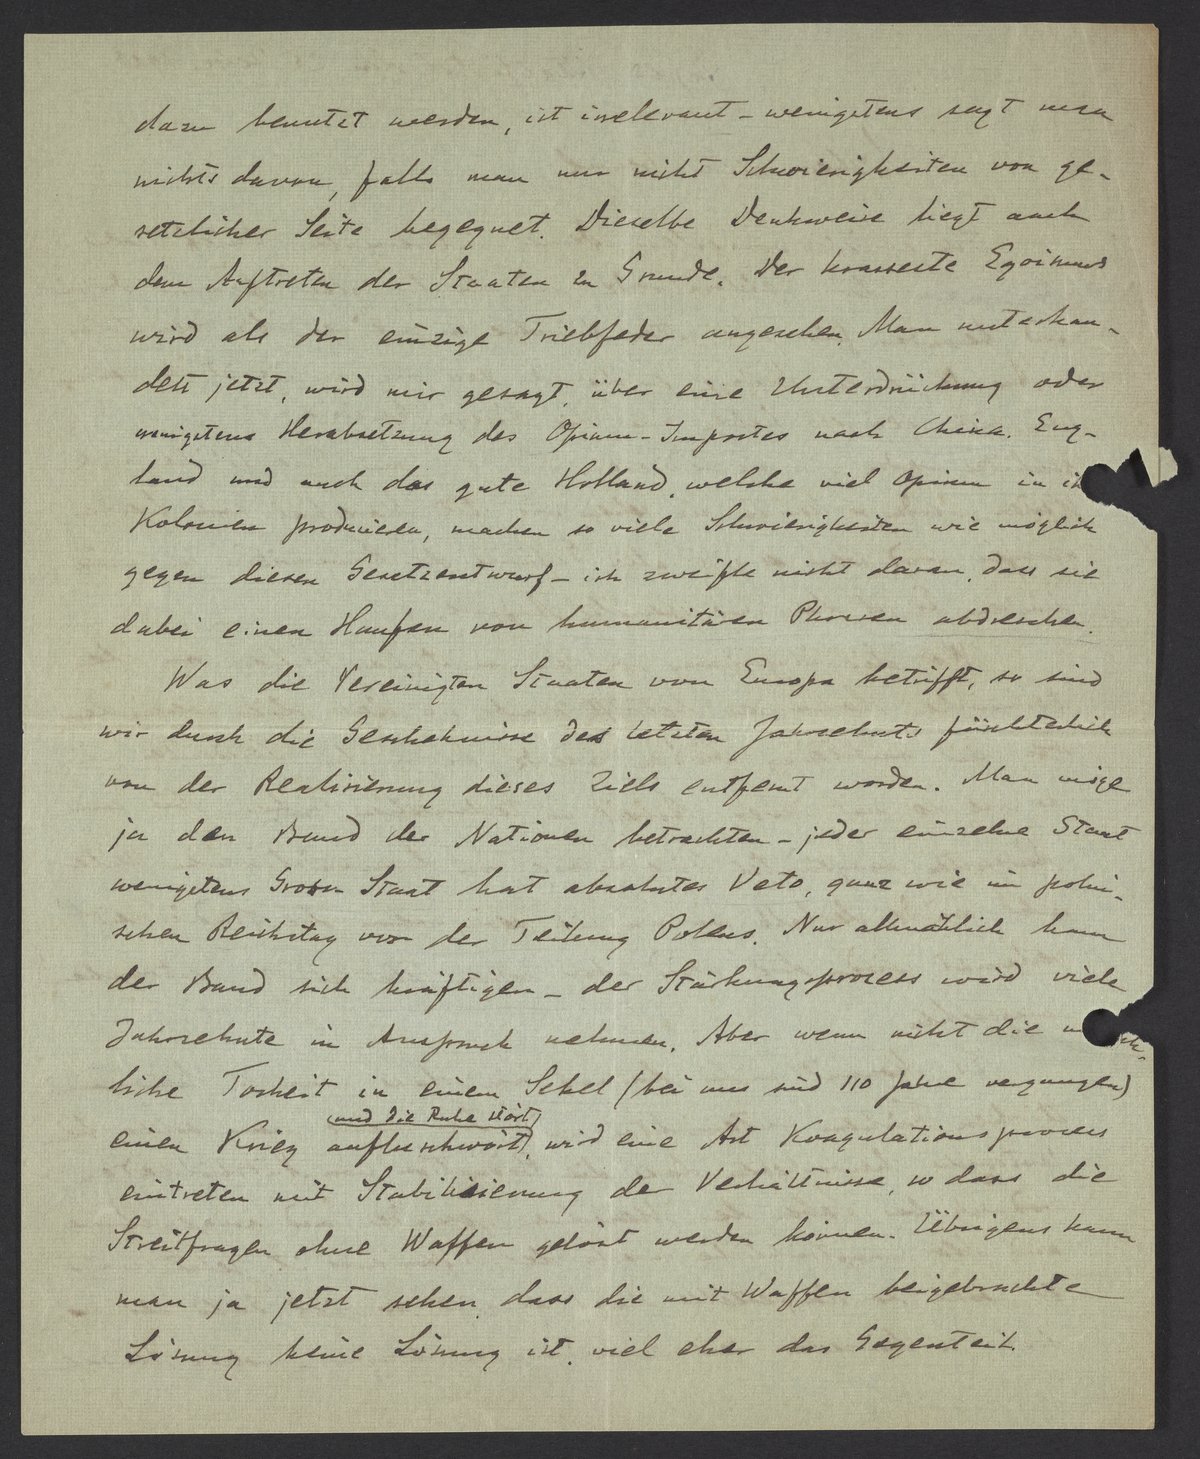 dazu benutzt werden, ist irrelevant – wenigstens sagt man
nichts davon, falls man nur nicht Schwierigkeiten von ge-
setzlicher Seite begegnet. Dieselbe Denkweise liegt auch
dem Auftreten der Staaten zu Grunde. Der krasseste Egoismus
wird als der einzige Triebfeder angesehen. Man unterhan-
delt jetzt, wird mir gesagt, über eine Unterdrückung oder
wenigstens Herabsetzung des Opium-Importes nach China. Eng-
land und auch das gute Holland, welche viel Opium in
Kolonien producieren, machen so viele Schwierigkeiten wie möglich
gegen diesen Gesetzentwurf – ich zweifle nicht daran, dass sie
dabei einen Haufen von humanitären Phrasen abdreschen.
Was die Vereinigten Staaten von Europa betrifft, so sind
wir durch die Geschehnisse des letzten Jahrzehnts fürchterlich
von der Realisierung dieses Ziels entfernt worden. Man möge
ja den Bund der Nationen betrachten – jeder einzelne Staat
wenigstens Grossen Staat hat absolutes Veto, ganz wie im polni-
schen Reichstag vor der Teilung Polens. Nur allmählich kann
der Bund sich kräftigen – der Stärkungsprozess wird viele
Jahrzehnte in Anspruch nehmen. Aber wenn nicht die
liche Torheit in einem Sekel (bei uns sind 110 Jahre vergangen)
(und die Ruhe stört)
einen Krieg aufbeschwört, wird eine Art Koagulationsprocess
eintreten mit Stabilisierung der Verhältnisse, so dass die
Streitfragen ohne Waffen gelöst werden können. Übrigens kann
man ja jetzt sehen, dass die mit Waffen beigebrachte
Lösung keine Lösung ist, viel eher das Gegenteil.